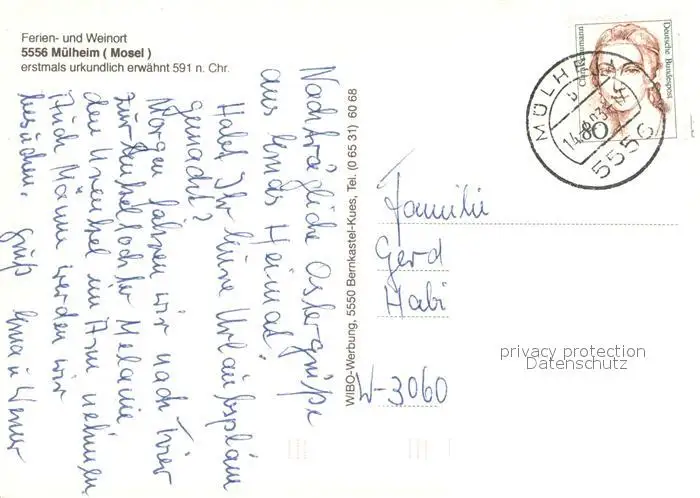 Ferien- und Weinort
5556 Mülheim ( Mosel )
erstmals urkundlich erwähnt 591 n. Chr.
Nachträgliche Ostergrüße
aus Heimat
Habt Ihr keine Urlaubspläne
gemacht?
Morgen fahren wir nach Trier
zur Enkeltochter Melanie
den Urenkel im Arm nehmen
Auch Männ werden wir
besuchen. Gruß u Werner
WIBO-Werbung, 5550 Bernkastel-Kues, Tel. (0 65 31) 60 68
Clara Schumann
Deutsche Bundespost
80
MÜLHEIM
5556
Familie
Gerd
Habi
W-3060
privacy protection
Datenschutz